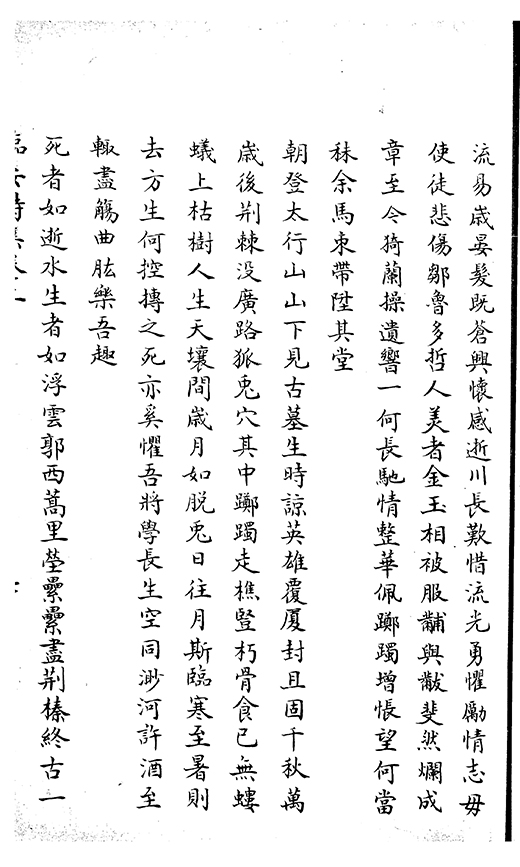 流易歲晏髮既蒼興懷感逝川長歎惜流光勇懼勵情志毋
使徒悲傷鄒魯多哲人美者金玉相被服黼與黻斐然爛成
章至今猗蘭操遺響一何長馳情整華佩躑躅增悵望何當
秣余馬束帶陞其堂
朝登太行山山下見古墓生時諒英雄覆厦封且固千秋萬
歲後荆棘没廣路狐兎穴其中躑躅走樵豎朽骨食已無螻
蟻上枯樹人生天壤間歲月如脱兎日往月斯臨寒至暑則
去方生何控摶之死亦奚懼吾將學長生空同渺河許酒至
輙盡觴曲肱樂吾趣
死者如逝水生者如浮雲郭西蒿里塋纍纍盡荆榛終古一
臨安詩集卷二